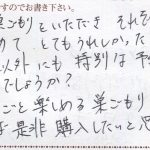 すのでお書き下さい。
巣ごもり といただき それを
めて とてもうれしかった
以外 にも 特別は 予
でしょうか?
ごと 楽しめる 巣ごもり
是非 購入したいと思